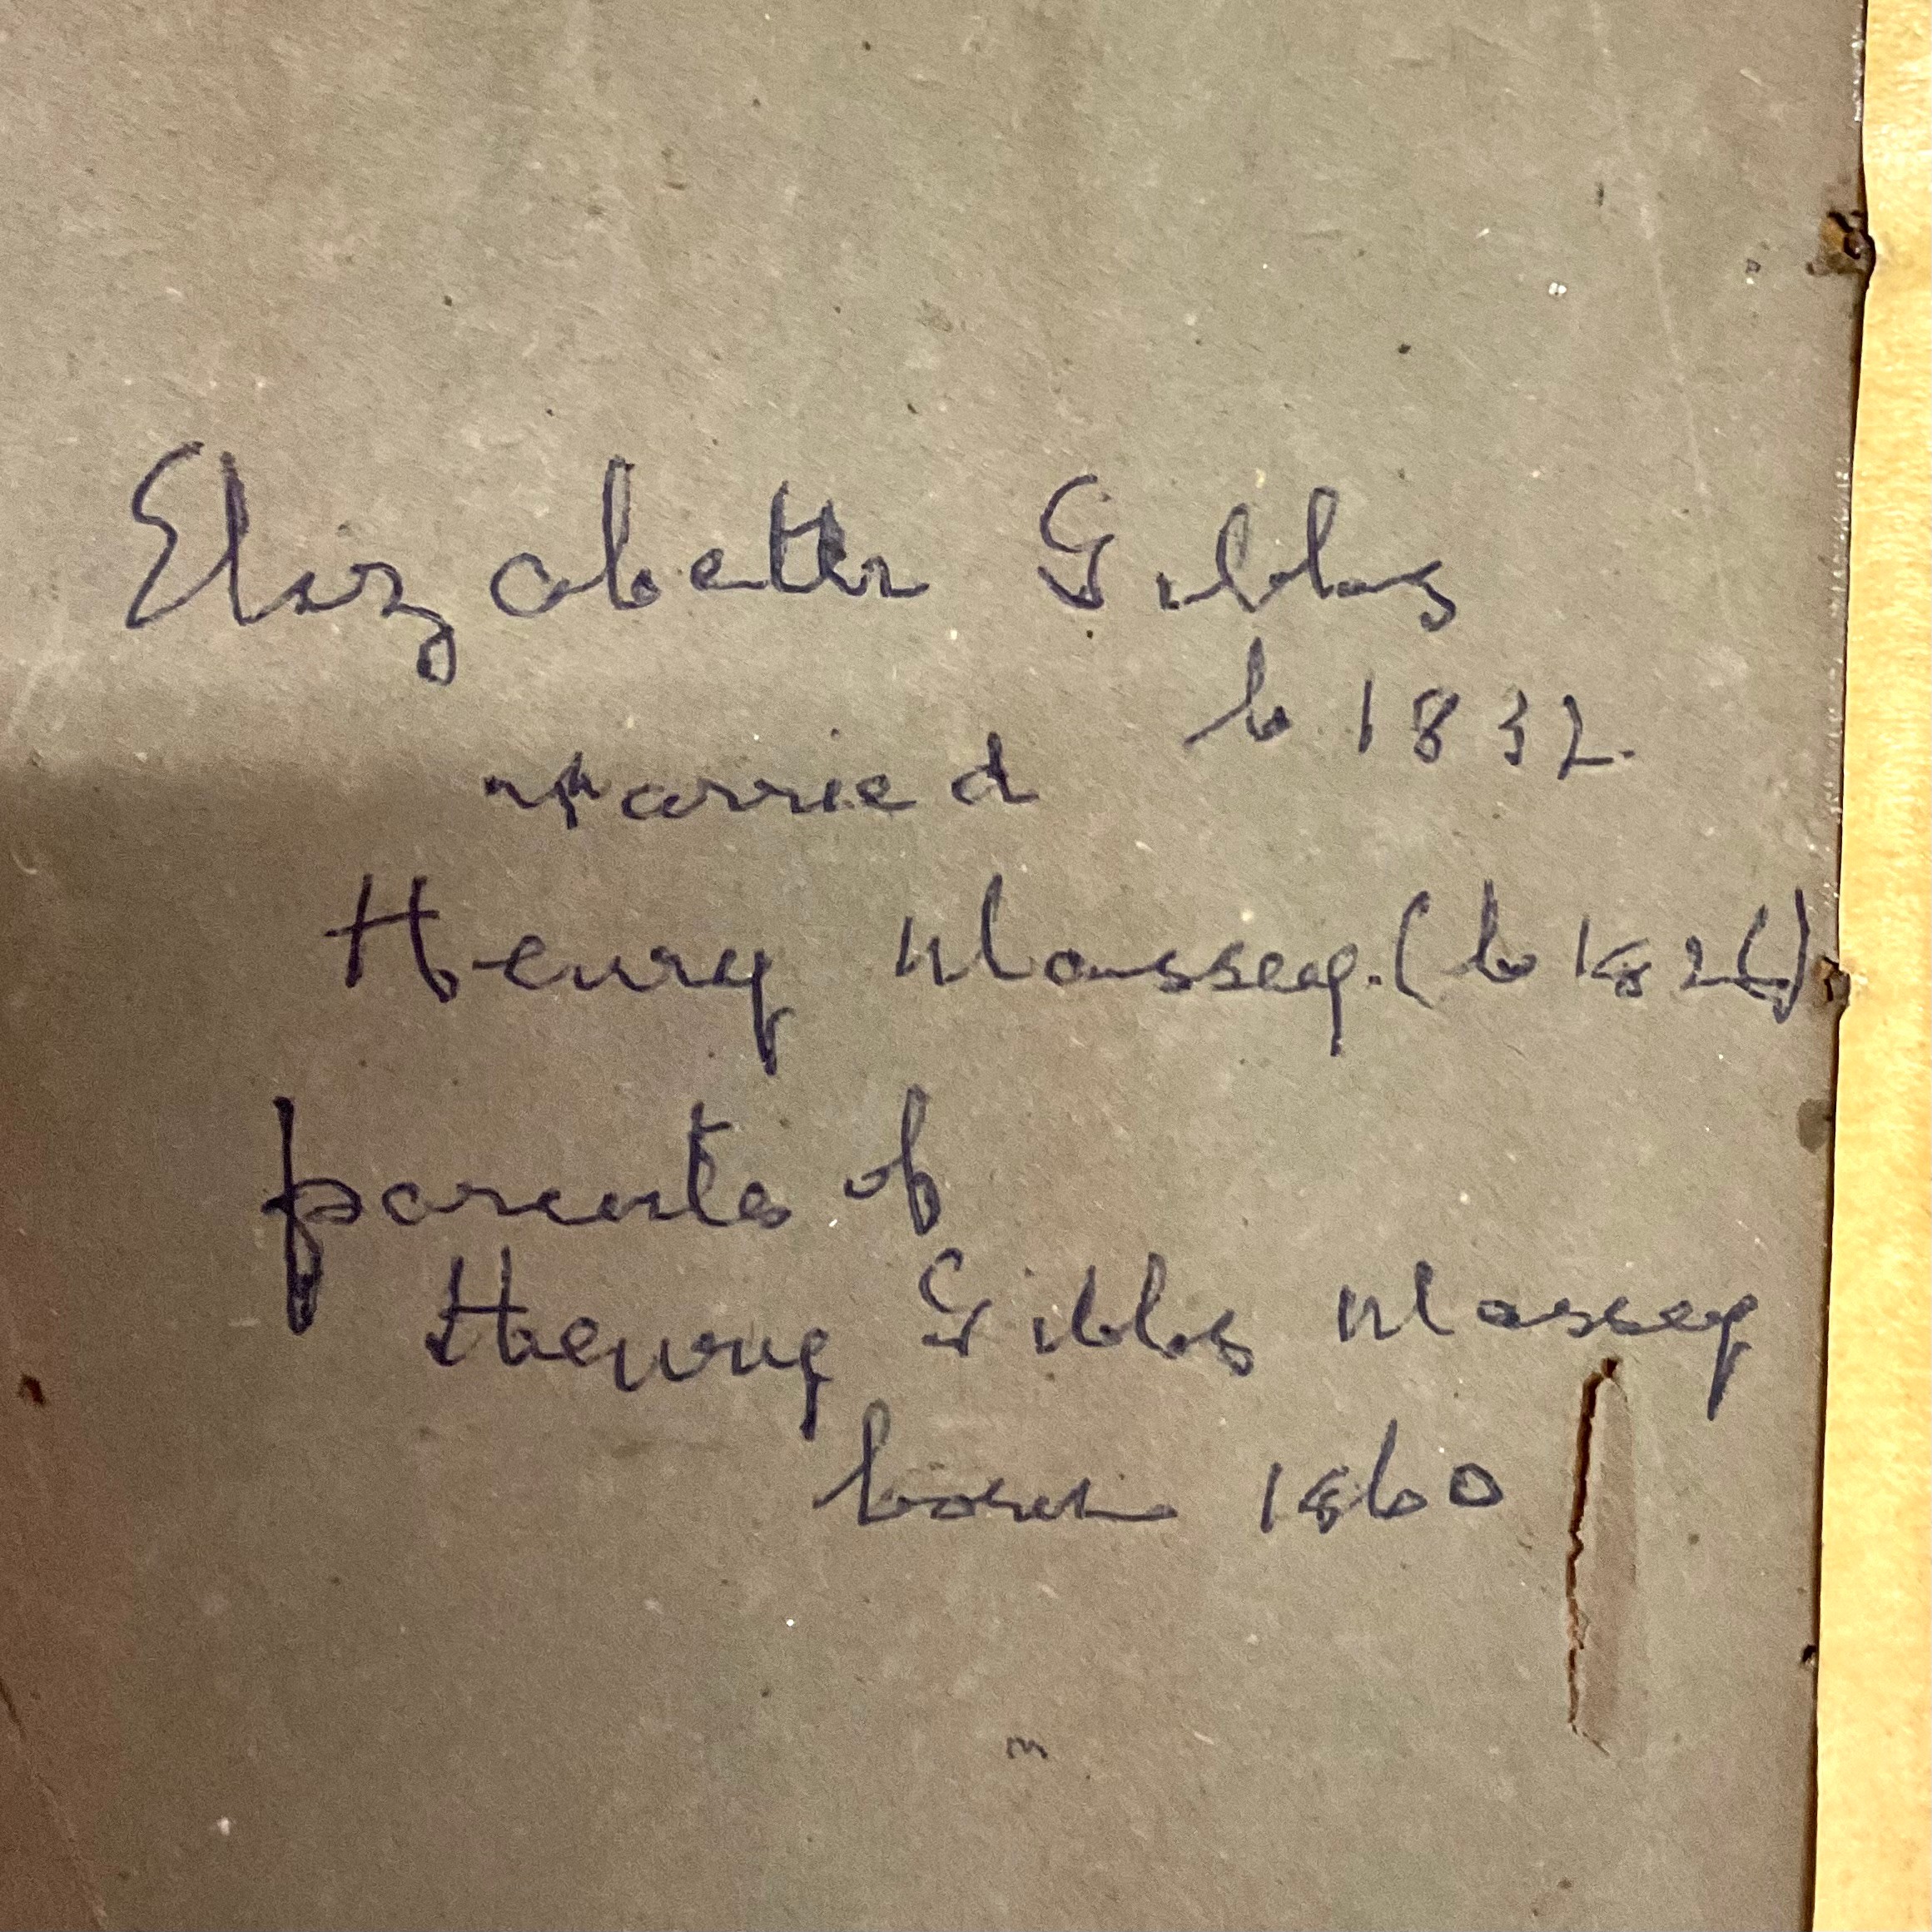 Elizabeth Gibbs
b 1832.
married
Henry Massey. (b
parents of
Henry Gibbs Massey
born 1860